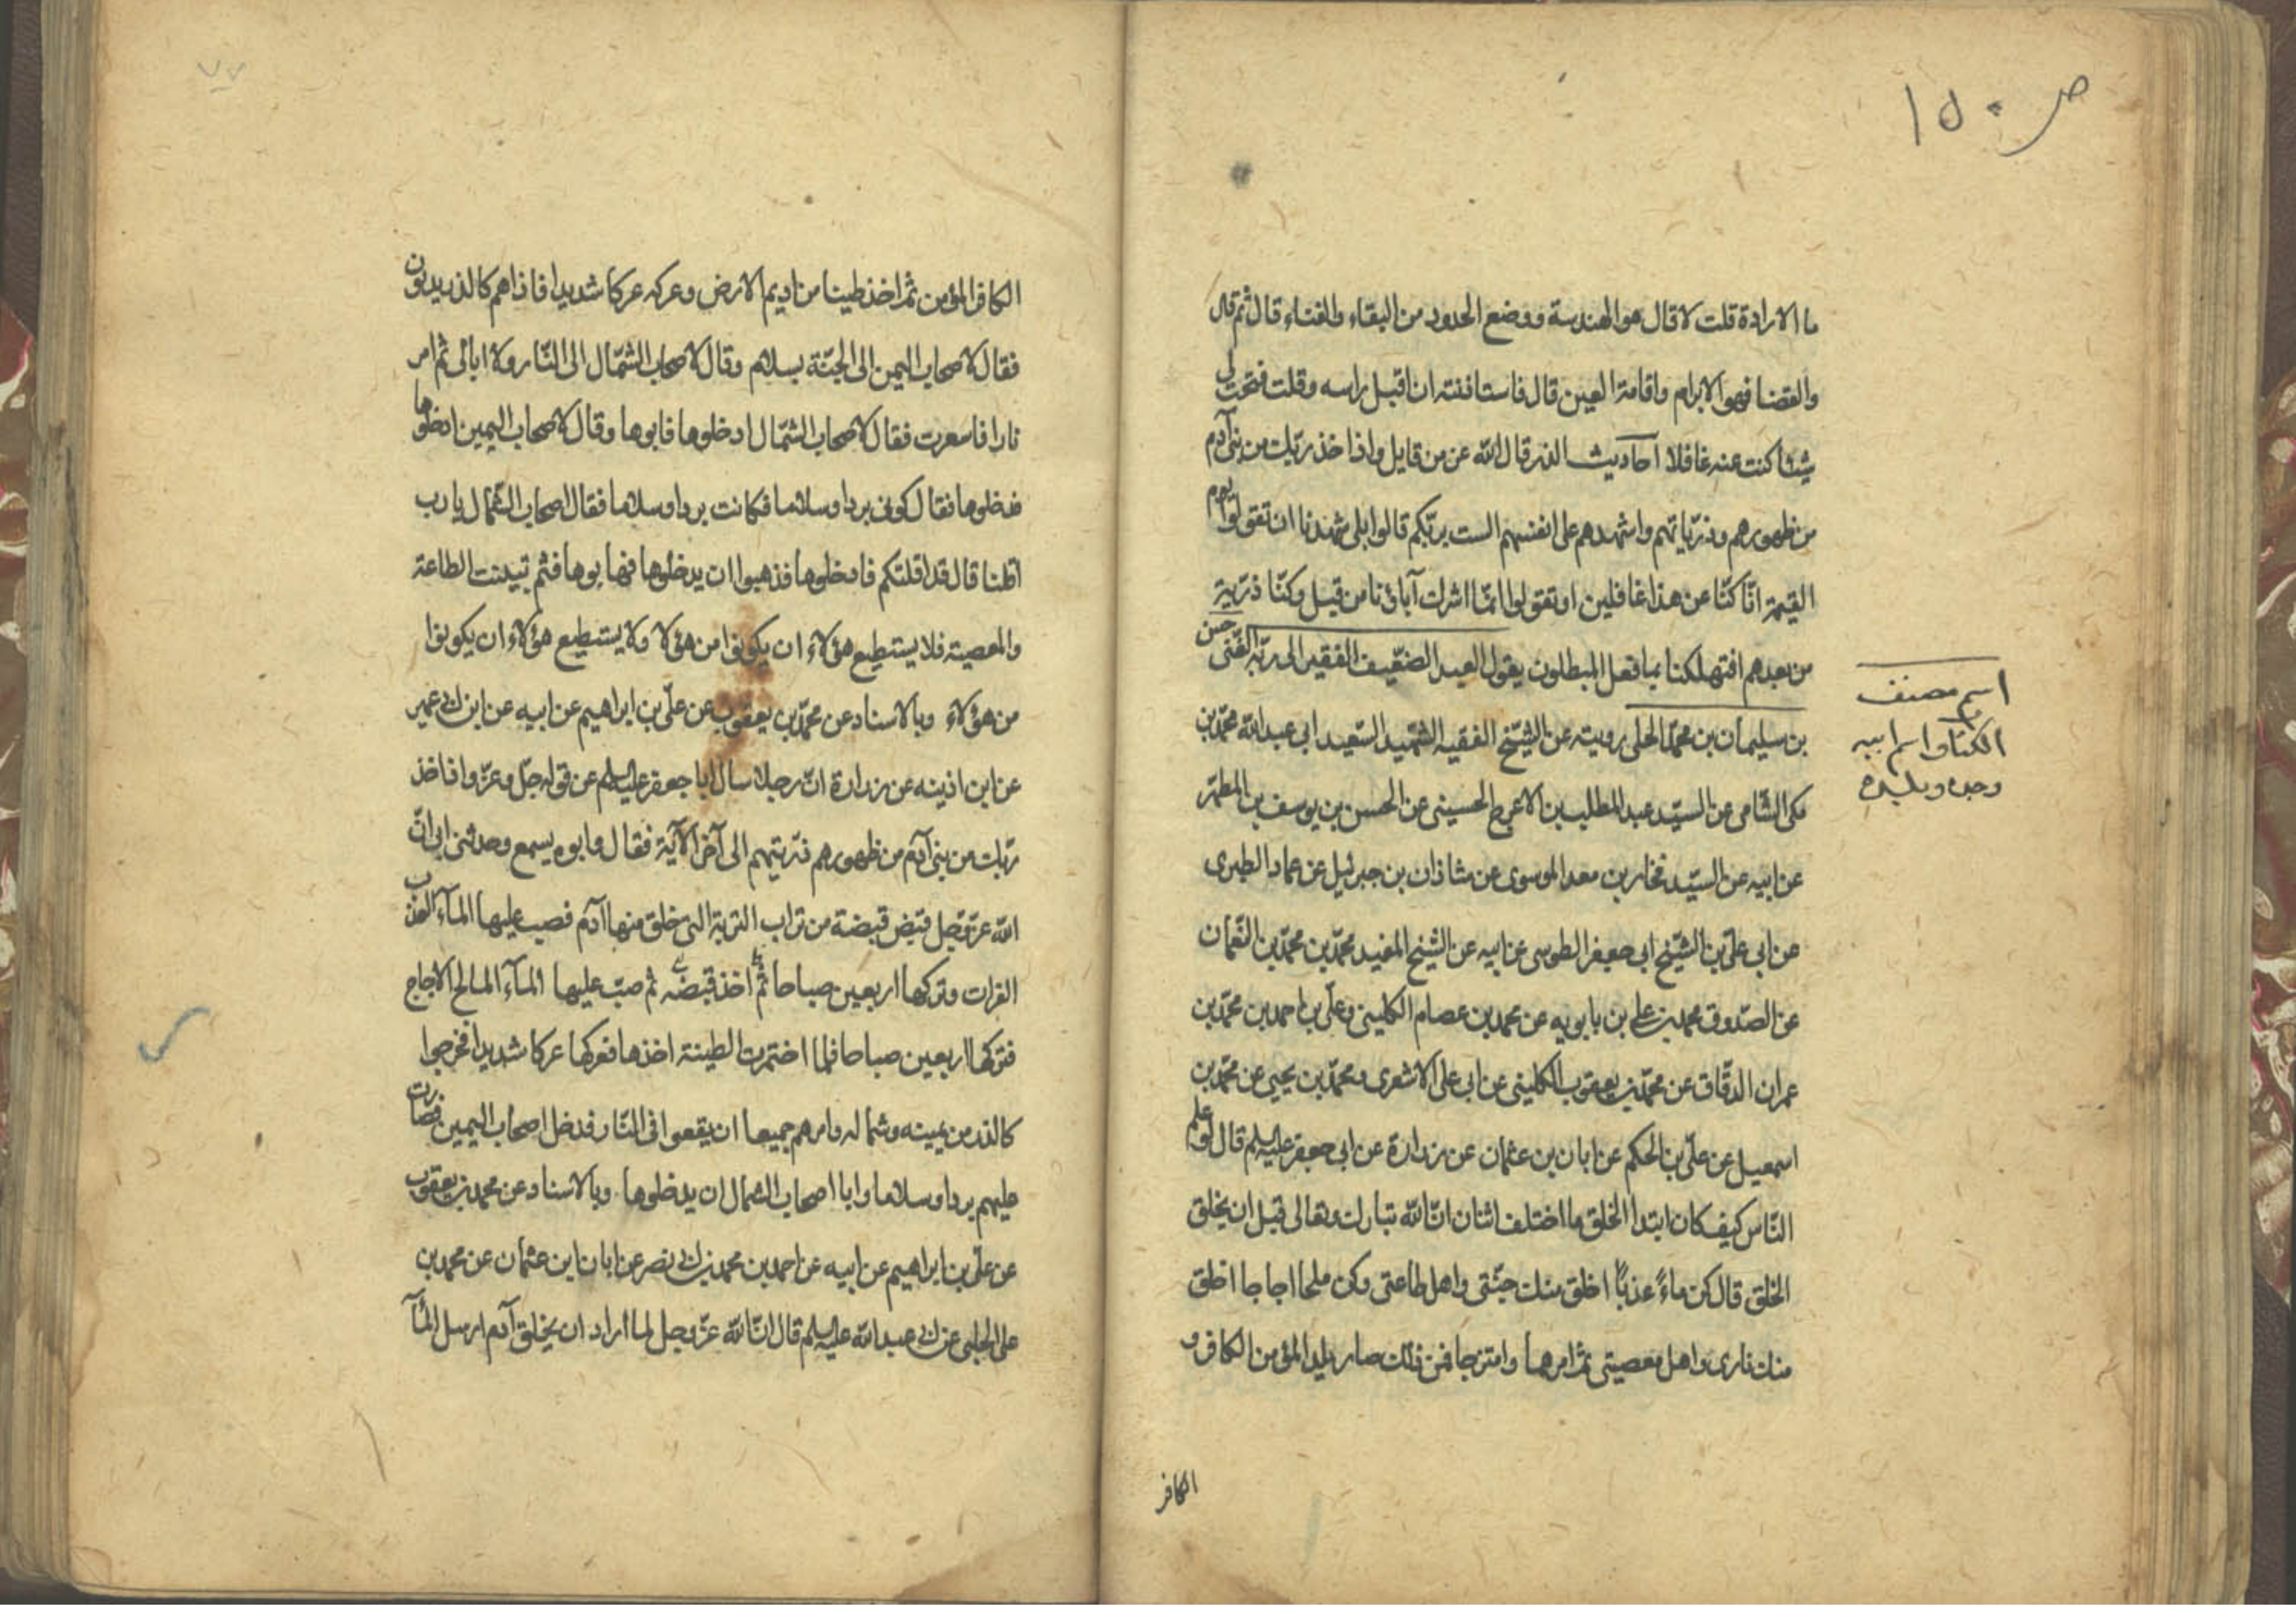 ص ١٥٠
ما الارادة قلت لا قال هو الهندسة ووضع الحدود من البقاء والفناء قال ثم قال
والقضا فهو الابرام واقامة العين قال فاستاذنته ان اقبل راسه وقلت فتحت لى
شيئا كنت عنه غافلا احاديث الذر قال الله عز من قايل واذ اخذ ربك من بنى آدم
من ظهورهم وذرياتهم واشهدهم على انفسهم الست بربكم قالوا بلى شهدنا ان تقولوا يوم
القيمة انا كنا عن هذا غافلين او تقولوا انما اشرك آباؤنا من قبل وكنا ذرية
من بعدهم افتهلكنا بما فعل المبطلون يقول العبد الضعيف الفقير الى ربه الغنى حسن
بن سليمان بن محمد الحلى رويته عن الشيخ الفقيه الشهيد السعيد ابى عبد الله محمد بن
مكى الشامى عن السيد عبد المطلب بن الاعرج الحسينى عن الحسن بن يوسف بن المطهر
عن ابيه عن السيد فخار بن معد الموسوى عن شاذان بن جبرئيل عن عماد الطبرى
عن ابى على بن الشيخ ابى جعفر الطوسى عن ابيه عن الشيخ المفيد محمد بن محمد بن النعمان
عن الصدوق محمد بن على بن بابويه عن محمد بن عصام الكلينى وعلى بن احمد بن محمد بن
عمران الدقاق عن محمد بن يعقوب الكلينى عن ابى على الاشعرى ومحمد بن يحيى عن محمد بن
اسمعيل عن على بن الحكم عن ابان بن عثمان عن زرارة عن ابى جعفر عليه السلم قال لو علم
الناس كيف كان ابتدا الخلق ما اختلف اثنان ان الله تبارك وتعالى قبل ان يخلق
الخلق قال كن ماءً عذباً اخلق منك جنتى واهل طاعتى وكن ملحا اجاجا اخلق
منك نارى واهل معصيتى ثم امرهما وامتزجا فمن ذلك صار يلد المؤمن الكافر و
الكافر
اسم مصنف
الكتاب واسم ابيه
وجده وبلده
٧٧
الكافر المؤمن ثم اخذ طينا من اديم الارض وعركه عركا شديدا فاذا هم كالذر يدبون
فقال لاصحاب اليمين الى الجنة بسلام وقال لاصحاب الشمال الى النار ولا ابالى ثم امر
نارا فاسعرت فقال لاصحاب الشمال ادخلوها فابوها وقال لاصحاب اليمين ادخلوها
فدخلوها فقال كونى بردا وسلاما فكانت بردا وسلاما فقال اصحاب الشمال يا رب
اقلنا قال قد اقلتكم فادخلوها فذهبوا ان يدخلوها فهابوها فثم تبينت الطاعة
والمعصية فلا يستطيع هؤلاء ان يكونوا من هؤلا ولا يستطيع هؤلاء ان يكونوا
من هؤلاء وبالاسناد عن محمد بن يعقوب عن على بن ابراهيم عن ابيه عن ابن ابى عمير
عن ابن اذينه عن زرارة ان رجلا سال ابا جعفر عليه السلم عن قوله جل وعز واذ اخذ
ربك من بنى آدم من ظهورهم ذريتهم الى آخر الآية فقال وابوه يسمع وحدثنى ابى ان
الله عز وجل قبض قبضة من تراب التربة التى خلق منها آدم فصب عليها المآء العذب
الفرات وتركها اربعين صباحا ثم اخذ قبضة ثم صب عليها المآء المالح الاجاج
فتركها اربعين صباحا فلما اختمرت الطينة اخذها فعركها عركا شديدا فخرجوا
كالذر من يمينه وشماله وامرهم جميعا ان يقعوا فى النار فدخل اصحاب اليمين فصارت
عليهم بردا وسلاما وابا اصحاب الشمال ان يدخلوها وبالاسناد عن محمد بن يعقوب
عن على بن ابراهيم عن ابيه عن احمد بن محمد بن ابى نصر عن ابان ابن عثمان عن محمد بن
على الحلبى عن ابى عبد الله عليه السلم قال ان الله عز وجل لما اراد ان يخلق آدم ارسل المآ